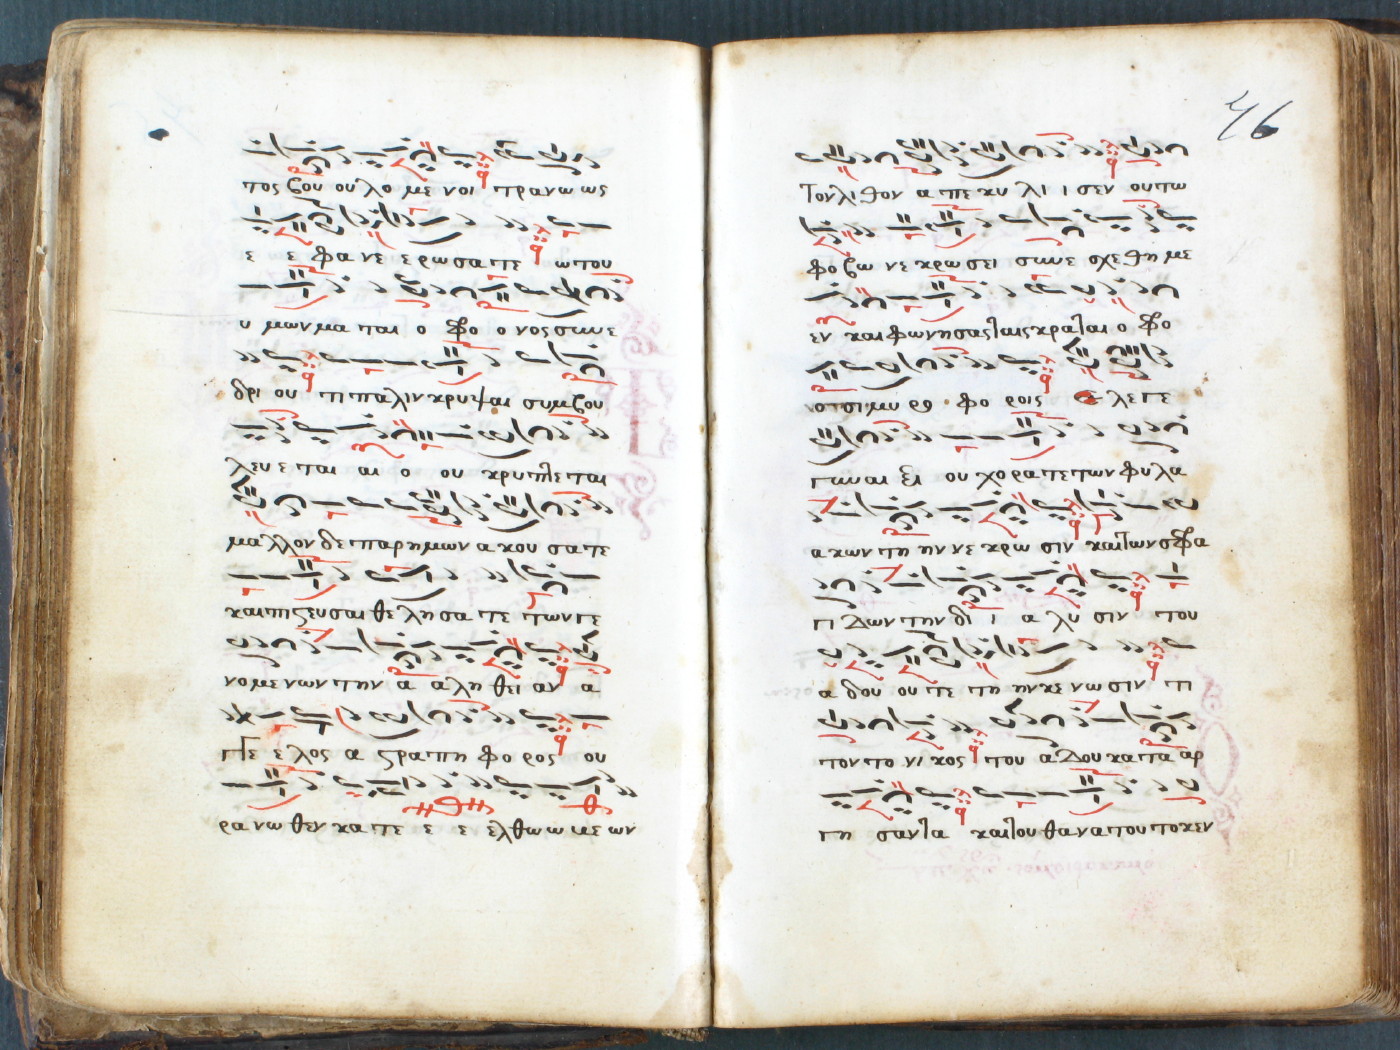 τος βου ου λο με νοι τρανω ως
ε ε φα νε ε ρω σα τε ω του
υ μων μα ται ο φο ο νος συνε
δρι ου τι παλιν κρυψαι συμβου
λευ ε ται αι ο ου κρυπτεται
μαλλον δε παρ ημων α κου σα τε
και πιςευσαι θε λη σα τε των γε
νο με νων την α α λη θει αν α
γγε ε λος α ςρα πη φο ρος ου
ρα νω θεν κα τε ε ε ελθω ω με ων
46
τον λι θον α πε κυ λι ι σεν ου τω
φο βω νε κρω σει συνε σχε θη με
εν και φωνησας ταις κραται ο φο
οισι μυ ρο φο ροις ε λε γε
γυναι ξι ου χ ορα τε των φυ λα
α κων τη ην νε κρω σιν και των σφρα
γι δων την δι ι α λυ σιν του
α δου ου τε τη ην κε νω σιν τι
τον το νι κος του αδου κατα αρ
γη σαντα και του θανατου το κεν